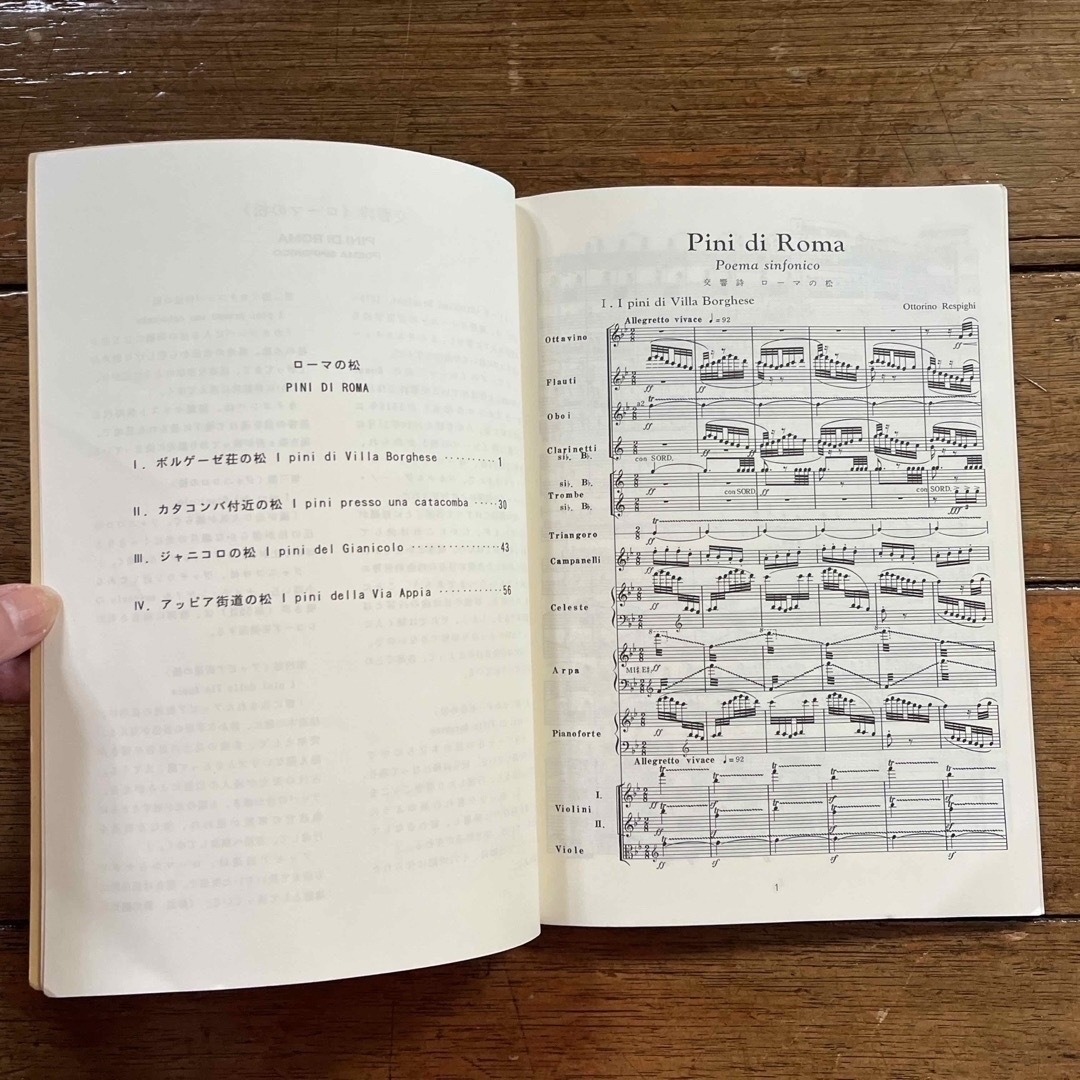 ローマの松
PINI DI ROMA
Ⅰ. ボルゲーゼ荘の松 I pini di Villa Borghese ·········· 1
Ⅱ. カタコンバ付近の松 I pini presso una catacomba ····· 30
Ⅲ. ジャニコロの松 I pini del Gianicolo ················ 43
Ⅳ. アッピア街道の松 I pini della Via Appia ··········· 56
Pini di Roma
Poema sinfonico
交響詩 ローマの松
Ⅰ. I pini di Villa Borghese
Ottorino Respighi
Allegretto vivace ♩=92
Ottavino
ff
Flauti
ff
Oboi
a2
ff
Clarinetti
si♭. B♭.
ff
con SORD.
si♭. B♭.
Trombe
si♭. B♭.
con SORD.
ff
con SORD.
fff
Triangoro
Campanelli
ff
Celeste
ff
Arpa
ff
Pianoforte
ff
Allegretto vivace ♩=92
I.
Violini
II.
ff
sf
sf
sf
ff
Viole
ff
sf
sf
sf
1